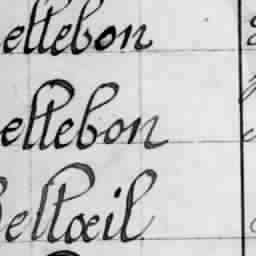 ellebon
ellebon
elloeil